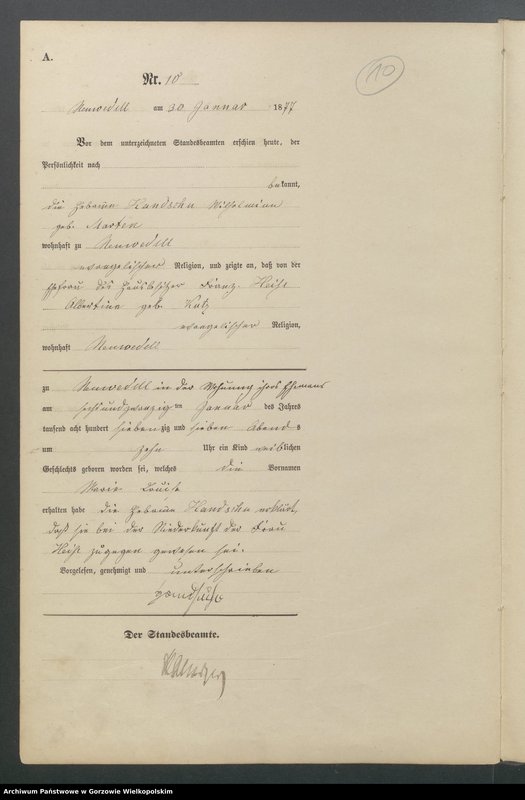 A.
10
Nr. 10
Neuwedell am 30 Januar 1877
Vor dem unterzeichneten Standesbeamten erschien heute, der
Persönlichkeit nach
bekannt,
die Hebamme Handschu Wilhelmine
geb. Marten
wohnhaft zu Neuwedell
evangelischer Religion, und zeigte an, daß von der
Ehefrau des Hausbesitzer Franz
Albertine geb.
evangelischer Religion,
wohnhaft Neuwedell
zu Neuwedell in der Wohnung ihres Ehemanns
am sechsundzwanzig ten Januar des Jahres
tausend acht hundert siebenzig und sieben Abends
um zehn Uhr ein Kind weiblichen
Geschlechts geboren worden sei, welches die Vornamen
Marie Louise
erhalten habe die Hebamme Handschu erklärt,
daß sie bei der Niederkunft der Frau
zugegen gewesen sei.
Vorgelesen, genehmigt und unterschrieben
Der Standesbeamte.
Archiwum Państwowe w Gorzowie Wielkopolskim